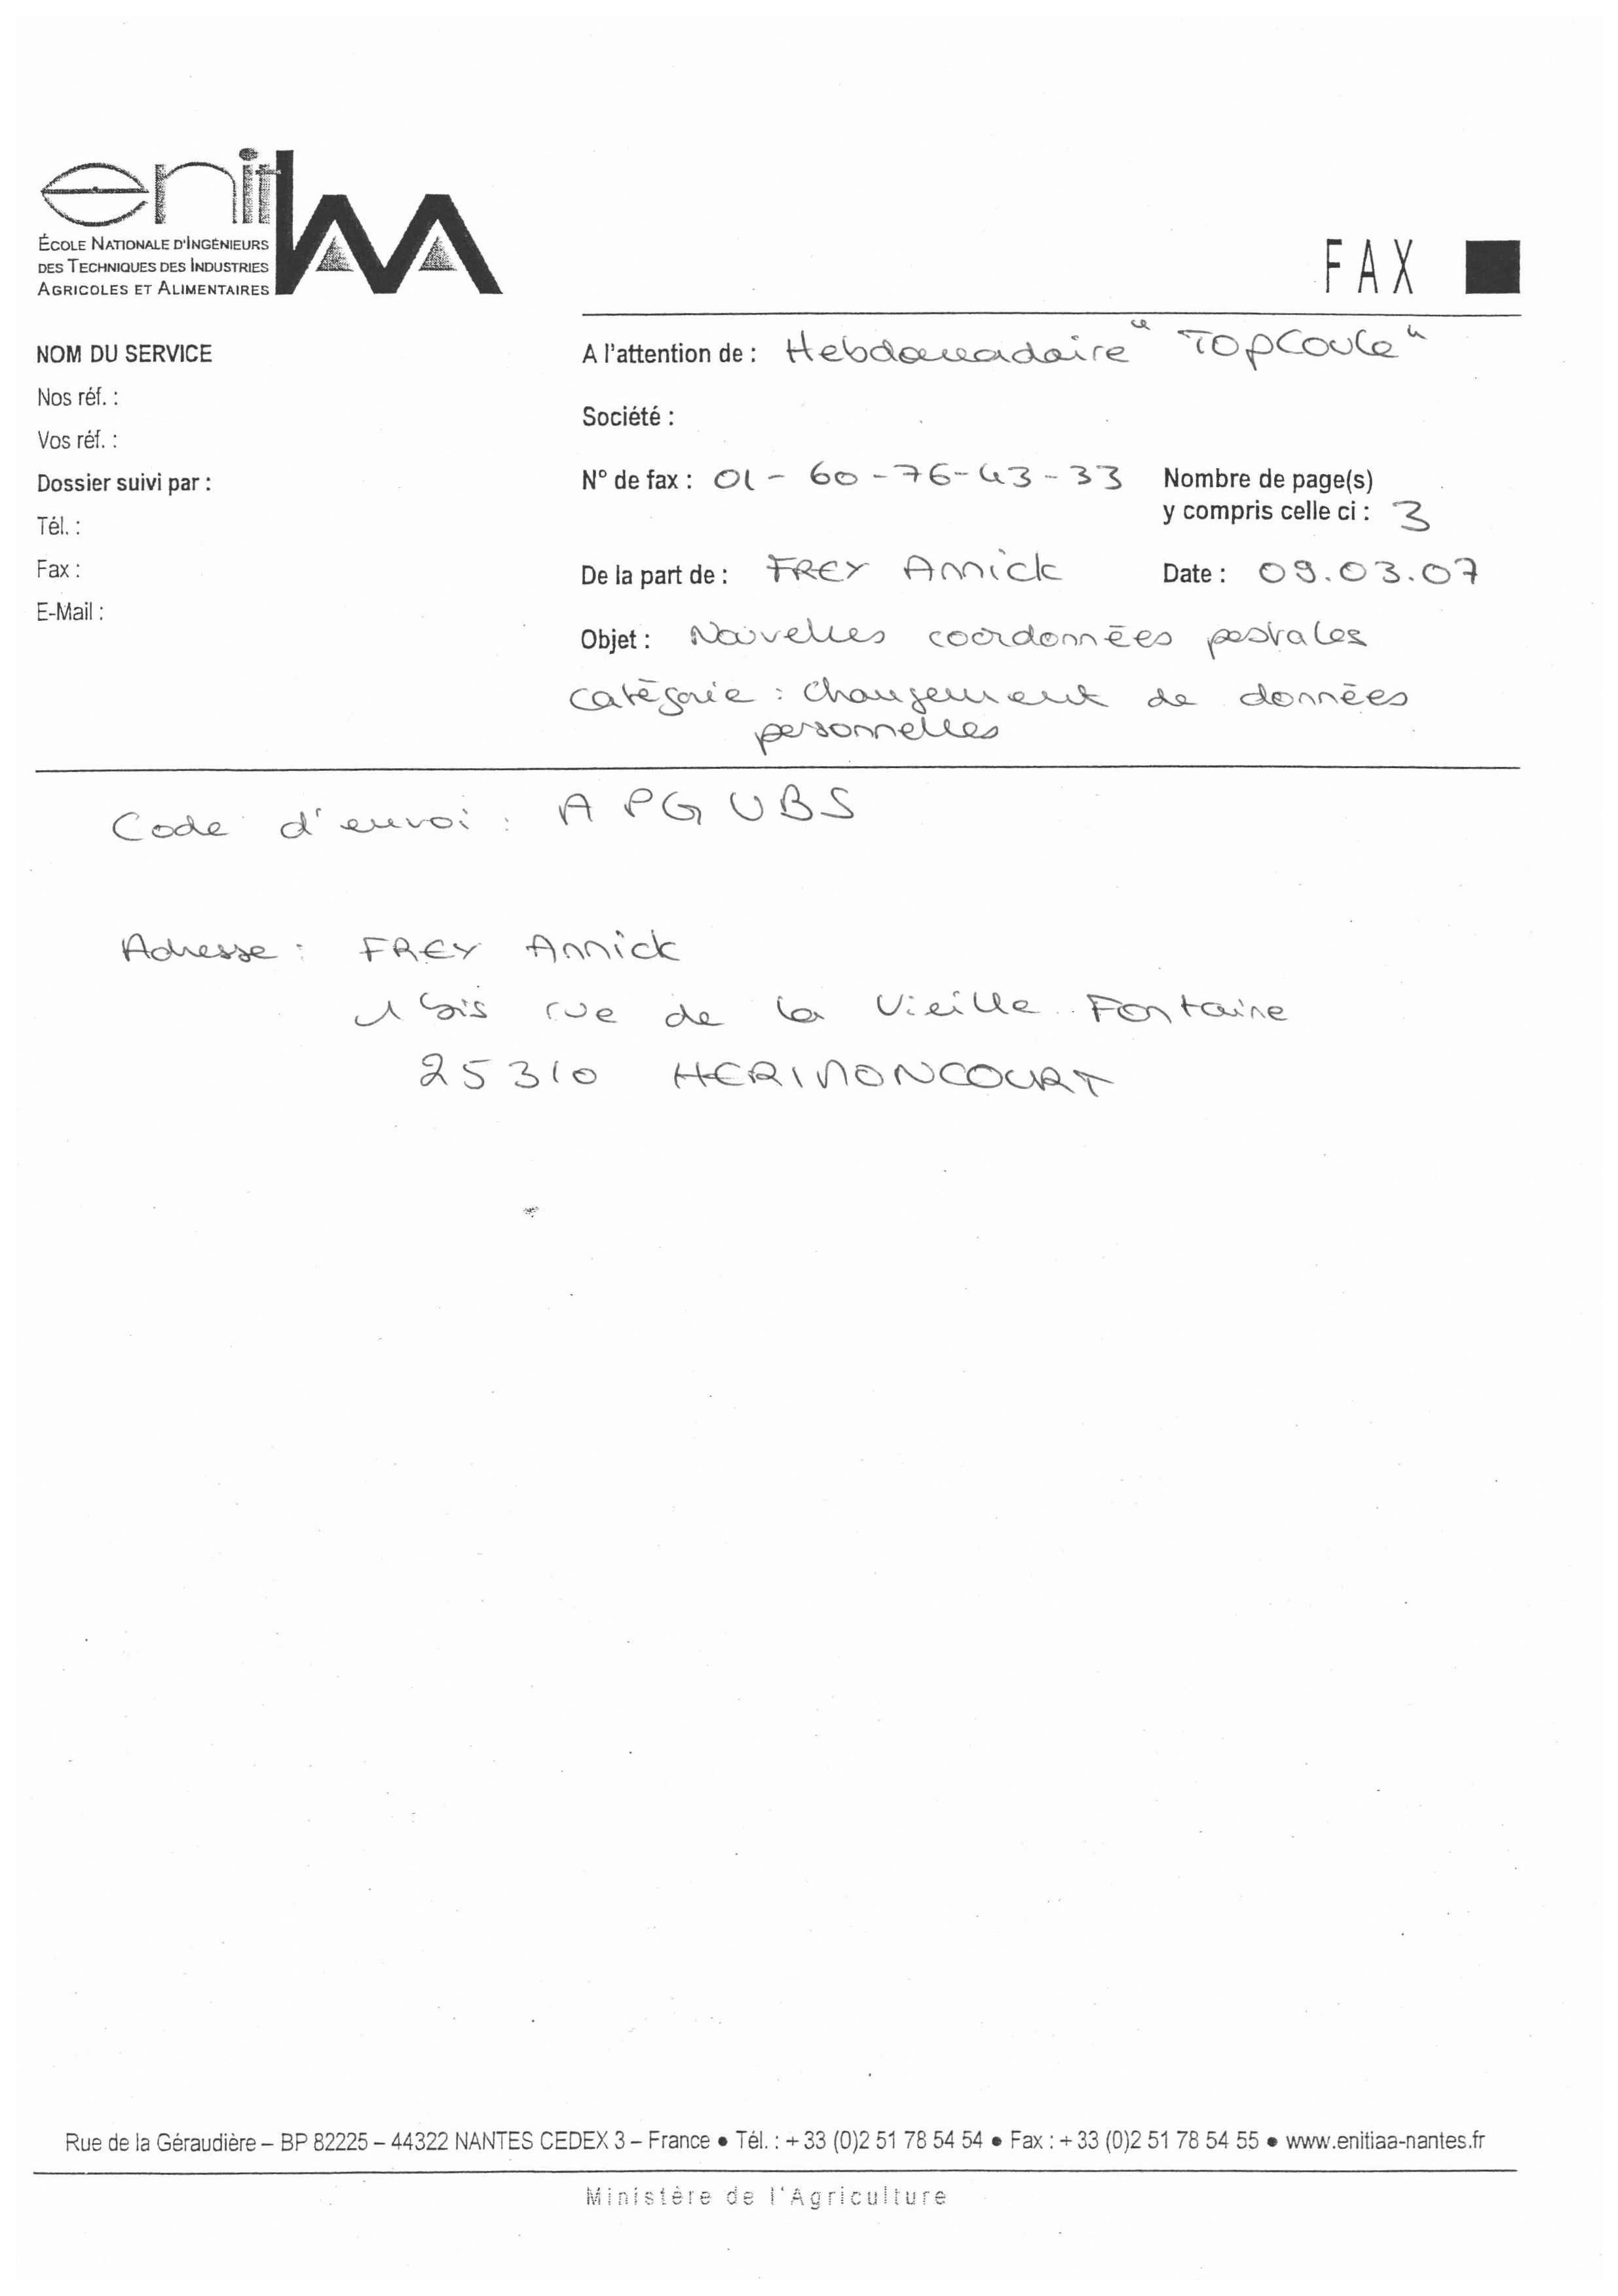 enitiAA
ÉCOLE NATIONALE D'INGÉNIEURS
DES TECHNIQUES DES INDUSTRIES
AGRICOLES ET ALIMENTAIRES
FAX
NOM DU SERVICE
Nos réf. :
Vos réf. :
Dossier suivi par :
Tél. :
Fax :
E-Mail :
A l'attention de : Hebdomadaire "TOPCoule"
Société :
N° de fax : 01-60-76-43-33
Nombre de page(s)
y compris celle ci : 3
De la part de : FREY Annick
Date : 09.03.07
Objet : Nouvelles coordonnées postales
catégorie : changement de données
personnelles
Code d'envoi : APGUBS
Adresse : FREY Annick
1 bis rue de la Vieille Fontaine
25310 HERIMONCOURT
Rue de la Géraudière – BP 82225 – 44322 NANTES CEDEX 3 – France • Tél. : + 33 (0)2 51 78 54 54 • Fax : + 33 (0)2 51 78 54 55 • www.enitiaa-nantes.fr
Ministère de l'Agriculture